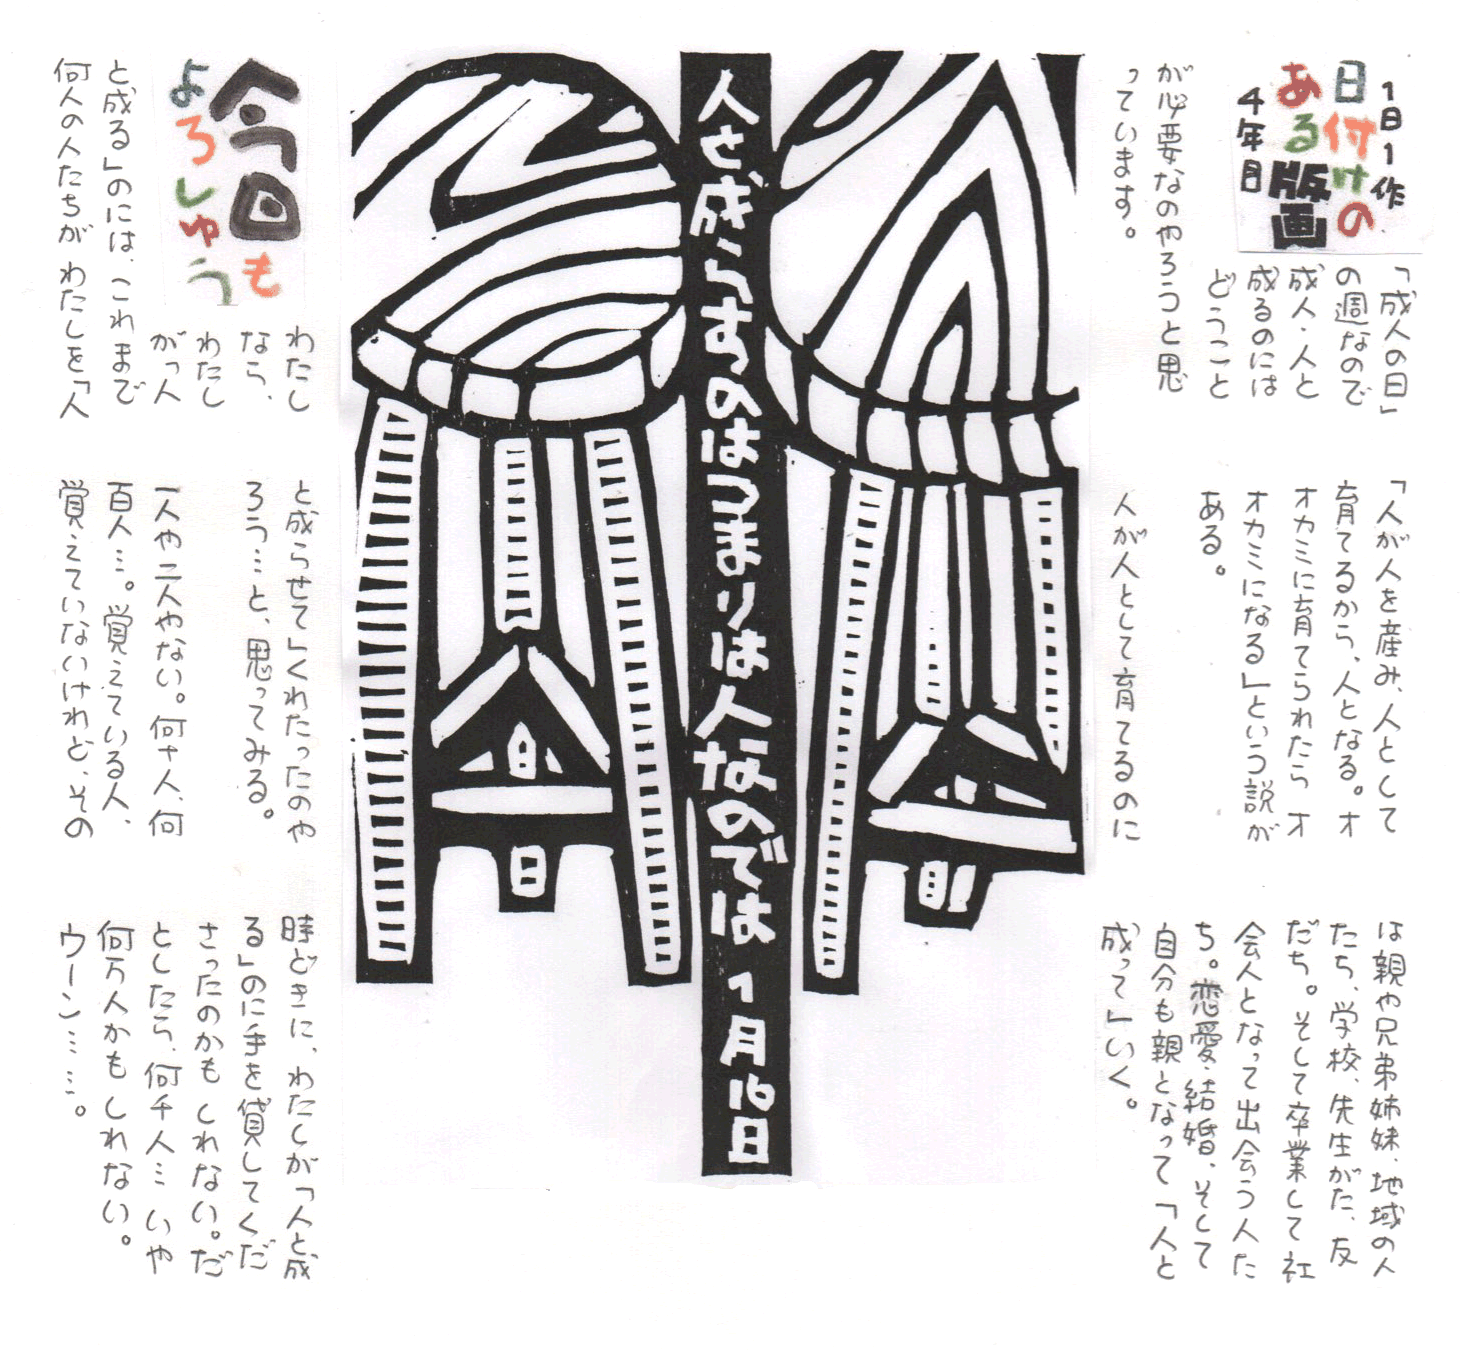 1日1作
日付けの
ある版画
4年目
「成人の日」
の週なので
成人・人と
成るのには
どうこと
が必要なのやろうと思
っています。
「人が人を産み、人として
育てるから、人となる。オ
オカミに育てられたら オ
オカミになる」という説が
ある。
人が人として育てるのに
は親や兄弟姉妹、地域の人
たち、学校、先生がた、友
だち。そして卒業して社
会人となって出会う人た
ち。恋愛、結婚、そして
自分も親となって「人と
成って」いく。
人と、成らすのはつまりは人なのでは 1月16日
今回も
よろしゅう
わたし
なら、
わたし
が「人
と成る」のには、これまで
何人の人たちが わたしを「人
と成らせて」くれたったのや
ろう…と、思ってみる。
一人や二人やない。何十人、何
百人…。覚えている人、
覚えていないけれど、その
時どきに、わたしが「人と成
る」のに手を貸してくだ
さったのかも しれない。だ
としたら、何千人… いや
何万人かも しれない。
ウーン……。